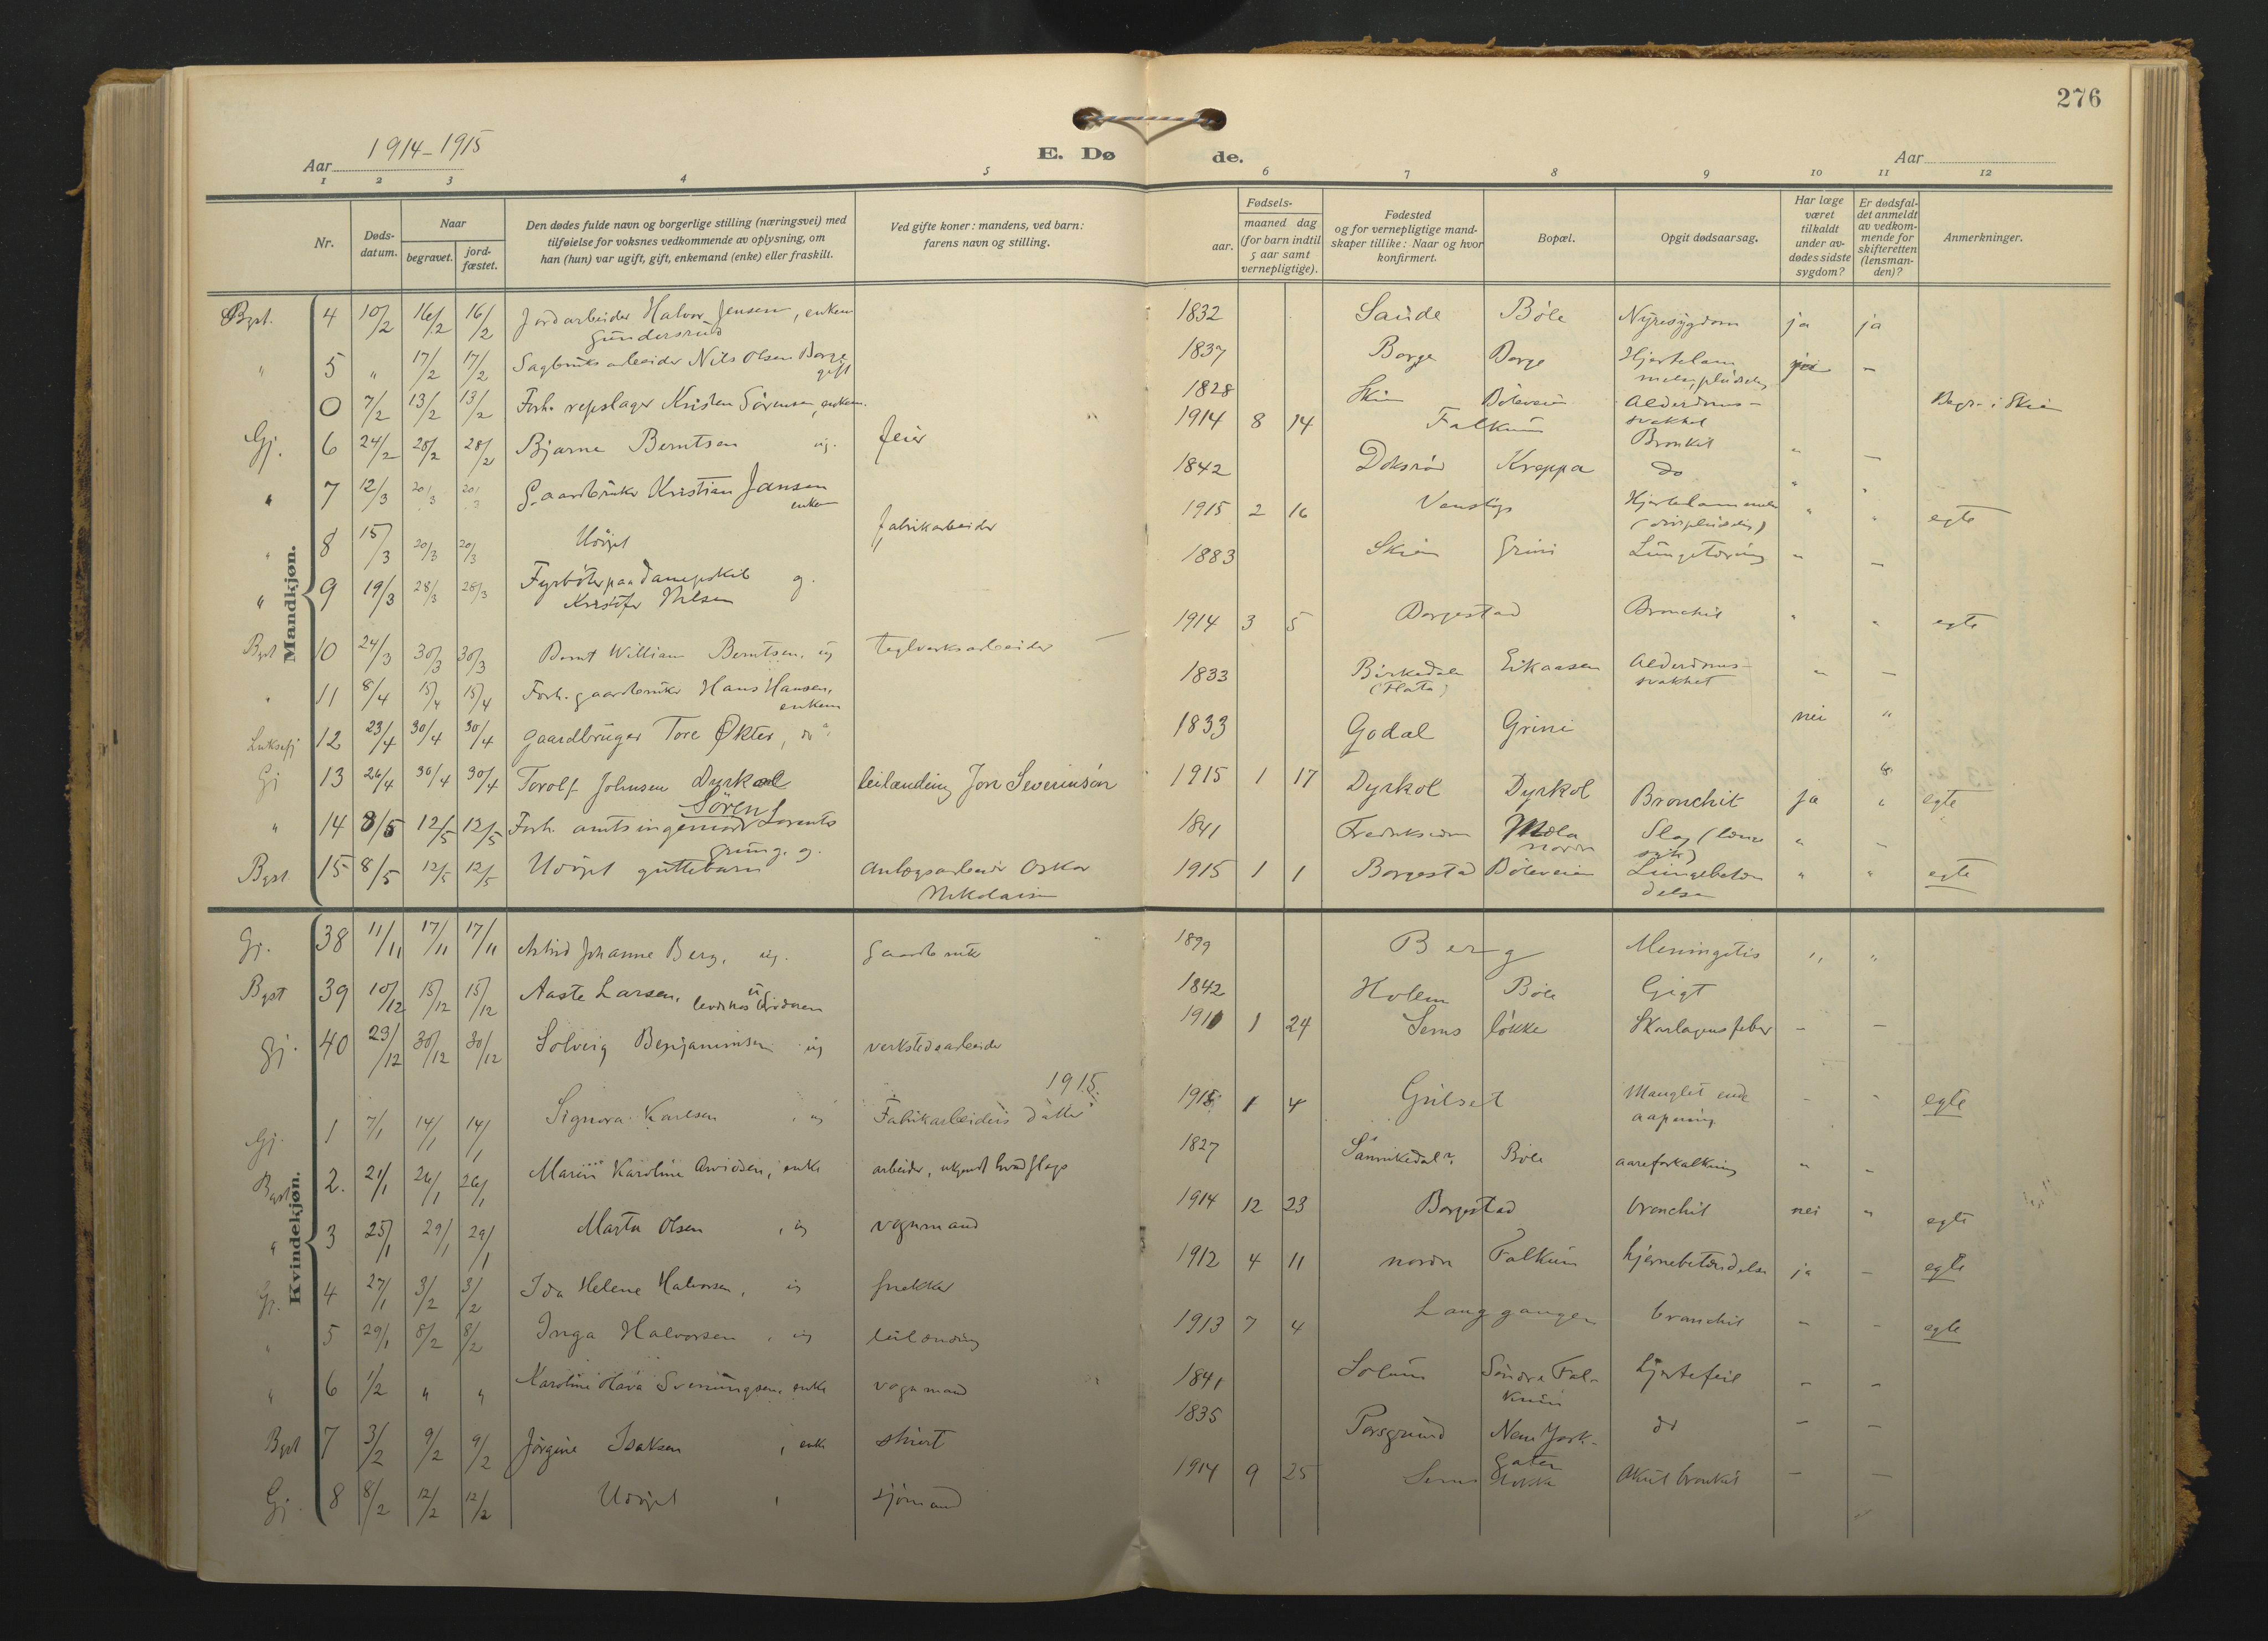 276
Aar 1914-1915
E. Dø de.
Aar
1 2 3 4 5 6 7 8 9 10 11 12
Nr.
Døds-
datum.
Naar
begravet.
jord-
fæstet.
Den dødes fulde navn og borgerlige stilling (næringsvei) med
tilføielse for voksnes vedkommende av oplysning, om
han (hun) var ugift, gift, enkemand (enke) eller fraskilt.
Ved gifte koner: mandens, ved barn:
farens navn og stilling.
Fødsels-
aar.
maaned dag
(for barn indtil
5 aar samt
vernepligtige).
Fødested
og for vernepligtige mand-
skaper tillike: Naar og hvor
konfirmert.
Bopæl.
Opgit dødsaarsag.
Har læge
været
tilkaldt
under av-
dødes sidste
sygdom?
Er dødsfal-
det anmeldt
av vedkom-
mende for
skifteretten
(lensman-
den)?
Anmerkninger.
Mandkjøn.
4 10/2 16/2 16/2 Jordarbeider Halvor Jensen, enkem 1832 Saude Böle Nyresygdom ja ja
Gundersrud
5 " 17/2 17/2 Sagbruksarbeider Nils Olsen Borge 1837 Borge Borge
gift
0 7/2 13/2 13/2 Forh. repslager Kristen Sörensen, enkem. 1828 Skien Böleveien Alderdoms-
svakhet Begr. i Skien
Gj. 6 24/2 28/2 28/2 Bjarne Berntsen ug. feier 1914 8 14 Falkum Bronkit
" 7 12/3 20/3 20/3 Gaardbruker Kristian Jansen 1842 Kreppa do
enkem
" 8 15/3 20/3 20/3 Udöpt fabrikarbeider 1915 2 16 egte
" 9 19/3 28/3 28/3 Fyrböter paa Dampskib g. 1883 Skien Grini Lungetæring
Kristofer Nilsen
10 24/3 30/3 30/3 Bernt William Berntsen, ug teglverksarbeider 1914 3 5 Borgestad Bronchit egte
" 11 8/4 15/4 15/4 Forh. gaardbruker Hans Hansen, 1833 Birkedalen Eikaasen Alderdoms-
enkem (Flata) svakhet
12 23/4 30/4 30/4 gaardbruger Tore Økter, do 1833 Godal Grini nei "
Gj 13 26/4 30/4 30/4 Torolf Johnsen Dyrkol leilænding Jon Severinsön 1915 1 17 Dyrkol Dyrkol Bronchit ja " egte
" 14 8/5 12/5 12/5 Forh. amtsingeniör Sören Lorentz 1841 Mæla
Grung. g. nordre
Bgst. 15 8/5 12/5 12/5 Udöpt guttebarn Anlægsarbeider Oskar 1915 1 1 Borgestad Böleveien Lungebeten egte
Nikolaisen delse
Kvindekjøn.
Gj. 38 11/11 17/11 17/11 Astrid Johanne Berg, ug. gaardbruker 1899 Berg Meningitis " "
Bgst 39 10/12 15/12 15/12 Aaste Larsen, ug 1842 Holem Böle Gigt
Gj. 40 23/12 30/12 30/12 Solveig Benjaminsen ug verkstedsarbeider 1 24 Sems lökke Skarlagensfeber - -
1915.
Gj. 1 7/1 14/1 14/1 Signora Karlsen, ug Fabrikarbeiders datter 1915 1 4 Gulset Manglet ende - - egte
aapning
2. 21/1 26/1 26/1 Karoline Arvidsen, enke arbeider, ukjendt hvad slags 1827 Sannikedal? Böle aareforkalkning " -
" 3 25/1 29/1 29/1 Marta Olsen, ug vognmand 1914 12 23 Borgestad bronchit nei " egte
Gj. 4 27/1 3/2 3/2 Ida Helene Halvorsen, ug snekker 1912 4 11 nordre Falkum hjernebetændelse ja - egte
" 5 29/1 8/2 8/2 Inga Halvorsen, ug leilænding 1913 7 4 Langgangen bronchit - - egte
" 6 1/2 " " Karoline Olava Sveningsen, enke vognmand 1841 Solum Söndre Fal- hjertefeil - -
kum
Bgst 7 3/2 9/2 9/2 Jörgine Isaksen, enke 1835 Porsgrund New York- do - -
gaten
Gj. 8 8/2 12/2 12/2 Udöpt, sjömand 1914 9 25 Sems Akut bronkit - -